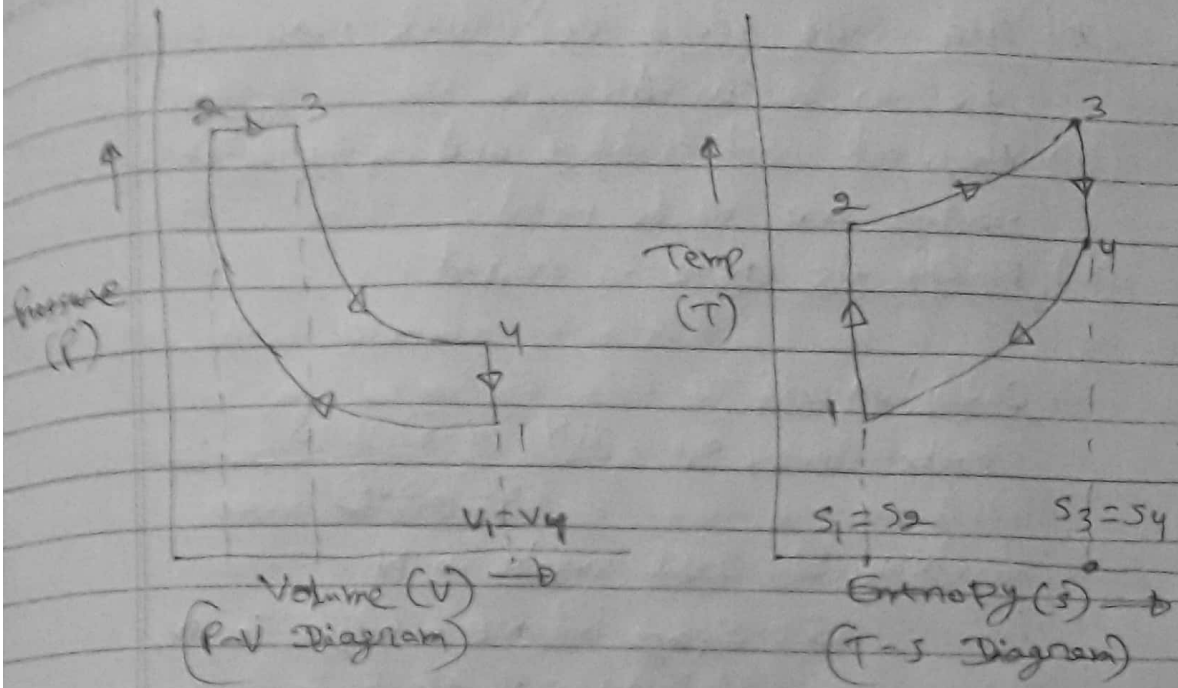 2 3
4
1
Pressure
(P)
V₁ = V4
Volume (V)
(P-V Diagram)
3
2
4
1
Temp
(T)
S₁ = S2
S3 = S4
Entropy (s)
(T-s Diagram)